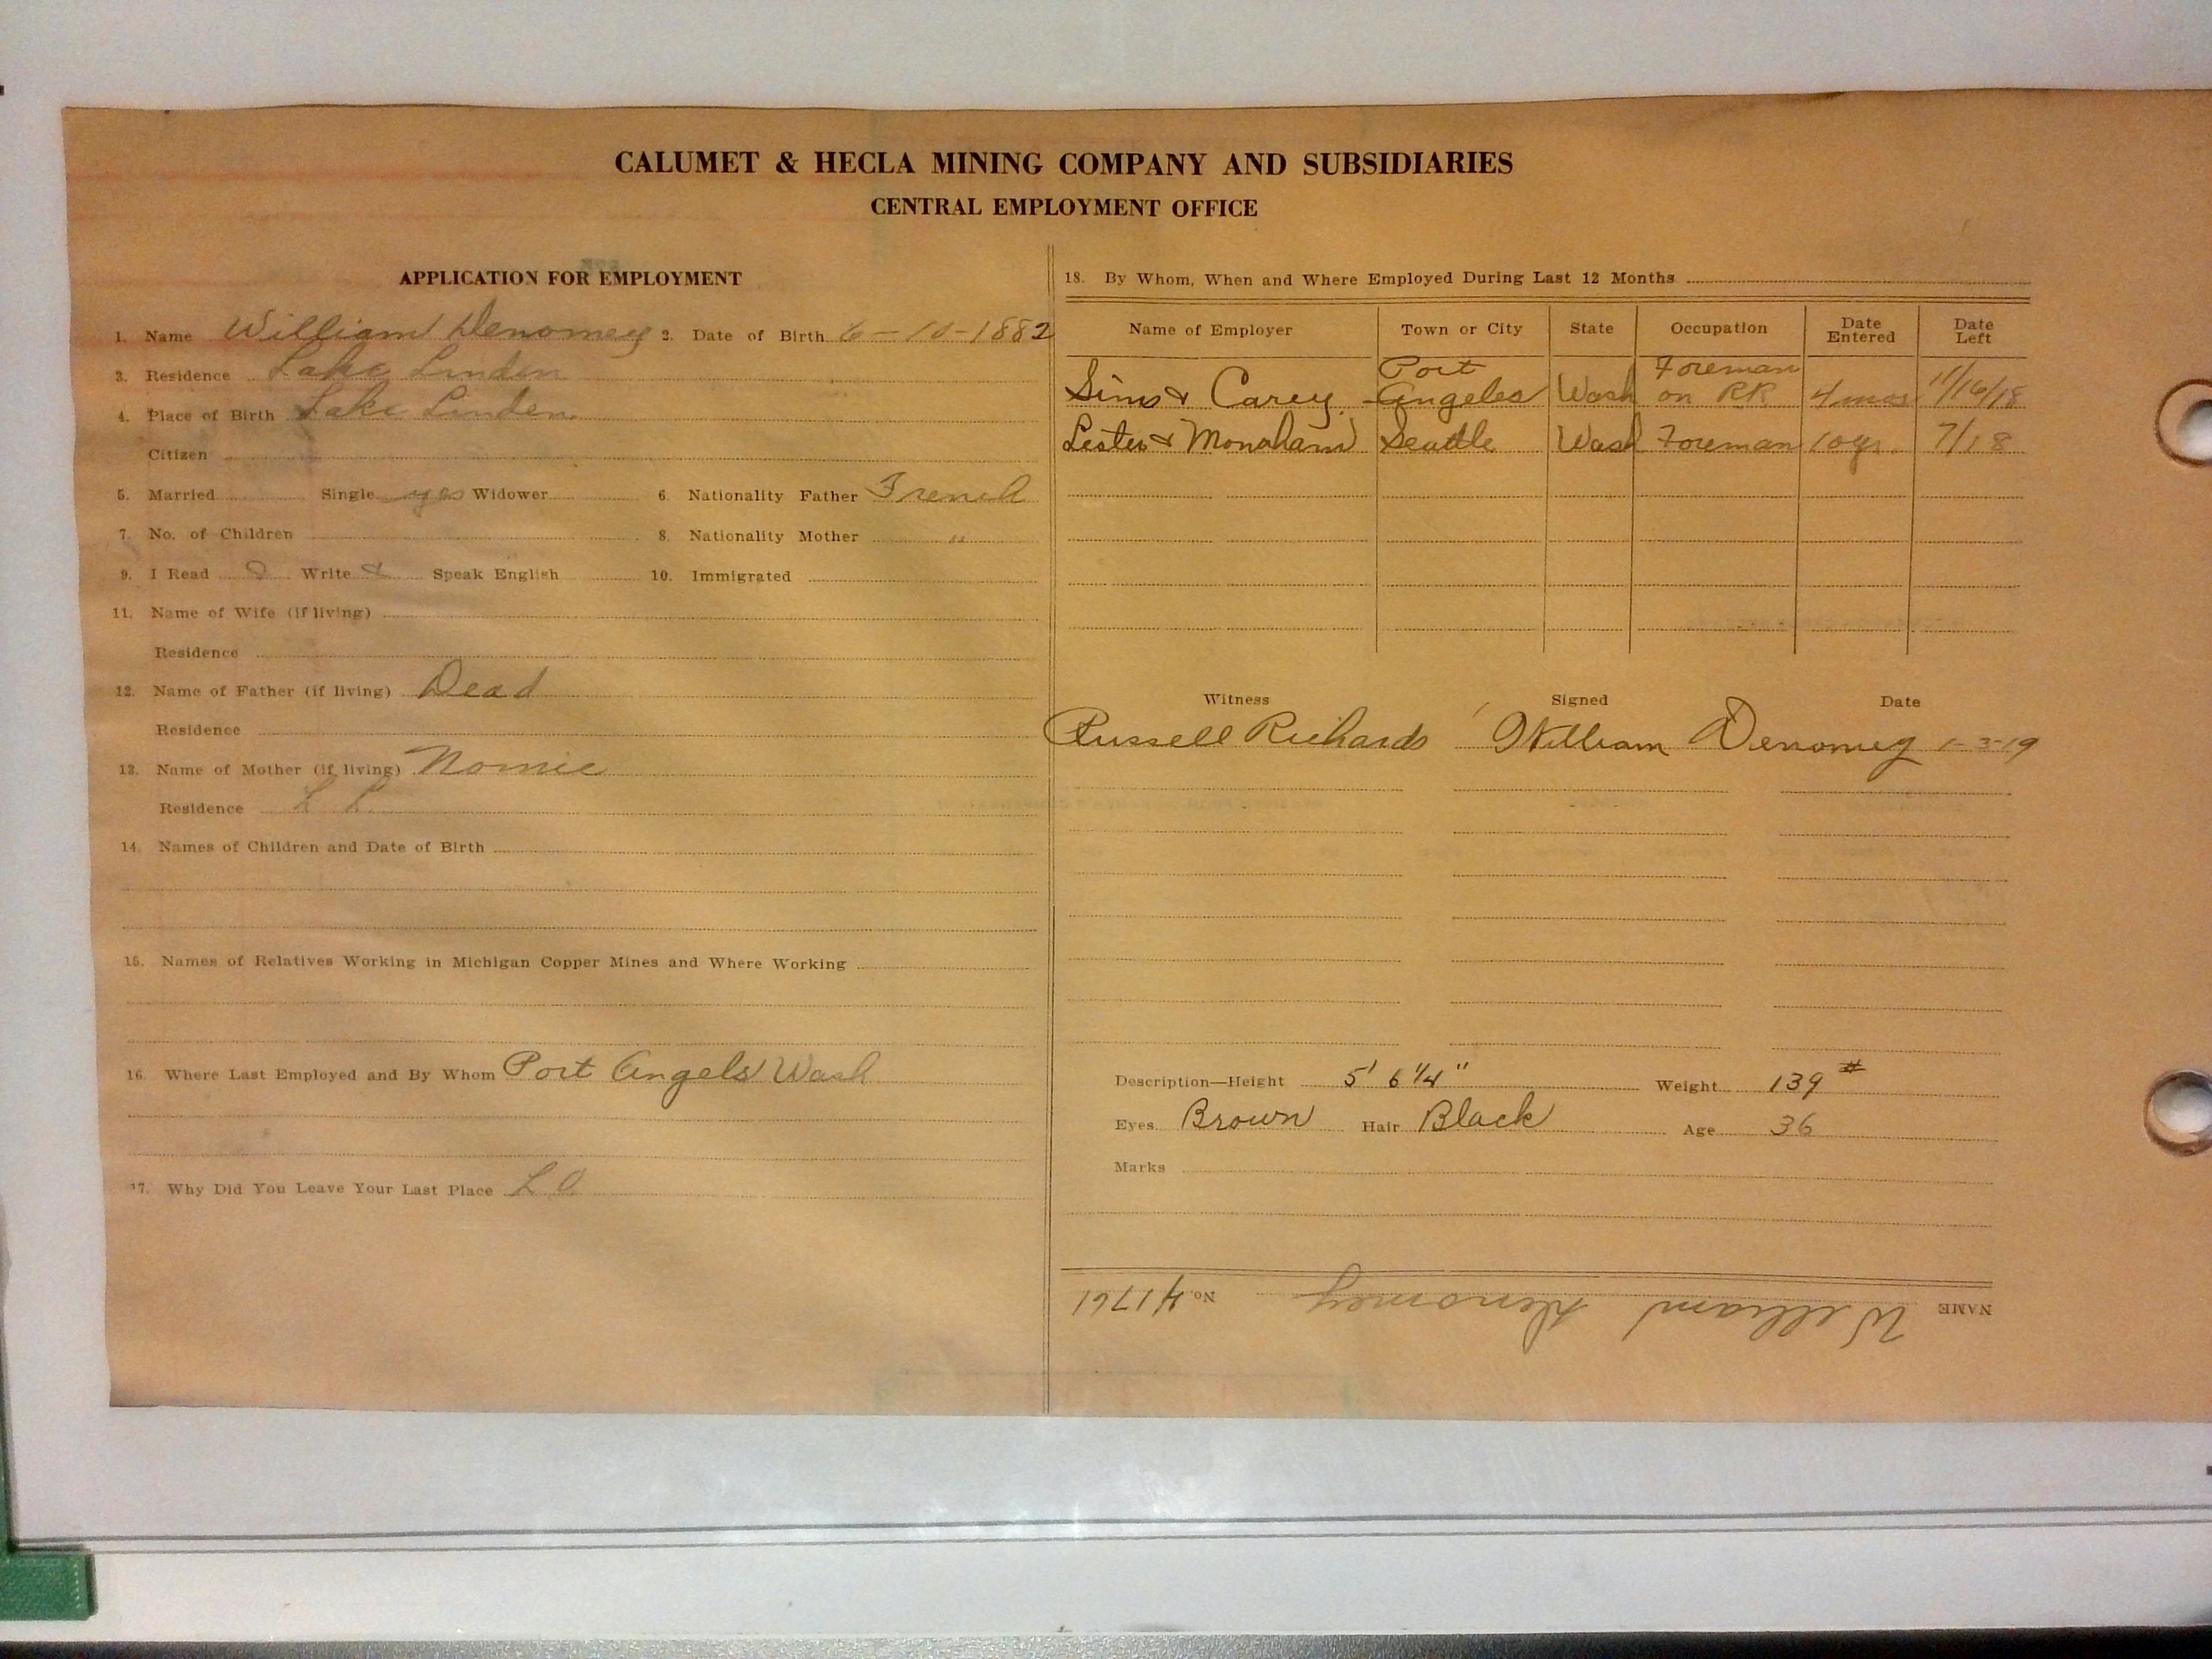 CALUMET & HECLA MINING COMPANY AND SUBSIDIARIES
CENTRAL EMPLOYMENT OFFICE
APPLICATION FOR EMPLOYMENT
1. Name William Denomey 2. Date of Birth 6-10-1882
3. Residence Lake Linden
4. Place of Birth Lake Linden
Citizen
5. Married Single yes Widower 6. Nationality Father French
7. No. of Children 8. Nationality Mother "
9. I Read & Write & Speak English 10. Immigrated
11. Name of Wife (if living)
Residence
12. Name of Father (if living) Dead
Residence
13. Name of Mother (if living)
Residence L L
14. Names of Children and Date of Birth
15. Names of Relatives Working in Michigan Copper Mines and Where Working
16. Where Last Employed and By Whom Port Angels Wash
17. Why Did You Leave Your Last Place L O
18. By Whom, When and Where Employed During Last 12 Months
Name of Employer Town or City State Occupation Date Entered Date Left
Sims & Carey Port Angeles Wash Foreman on RR 4 mos 11/16/18
Lester & Monaham Seattle Wash Foreman 10 yr. 7/18
Witness Signed Date
Russell Richards William Denomey 1-3-19
Description—Height 5' 6 1/4" Weight 139 #
Eyes Brown Hair Black Age 36
Marks
NAME William Denomey No. 41761